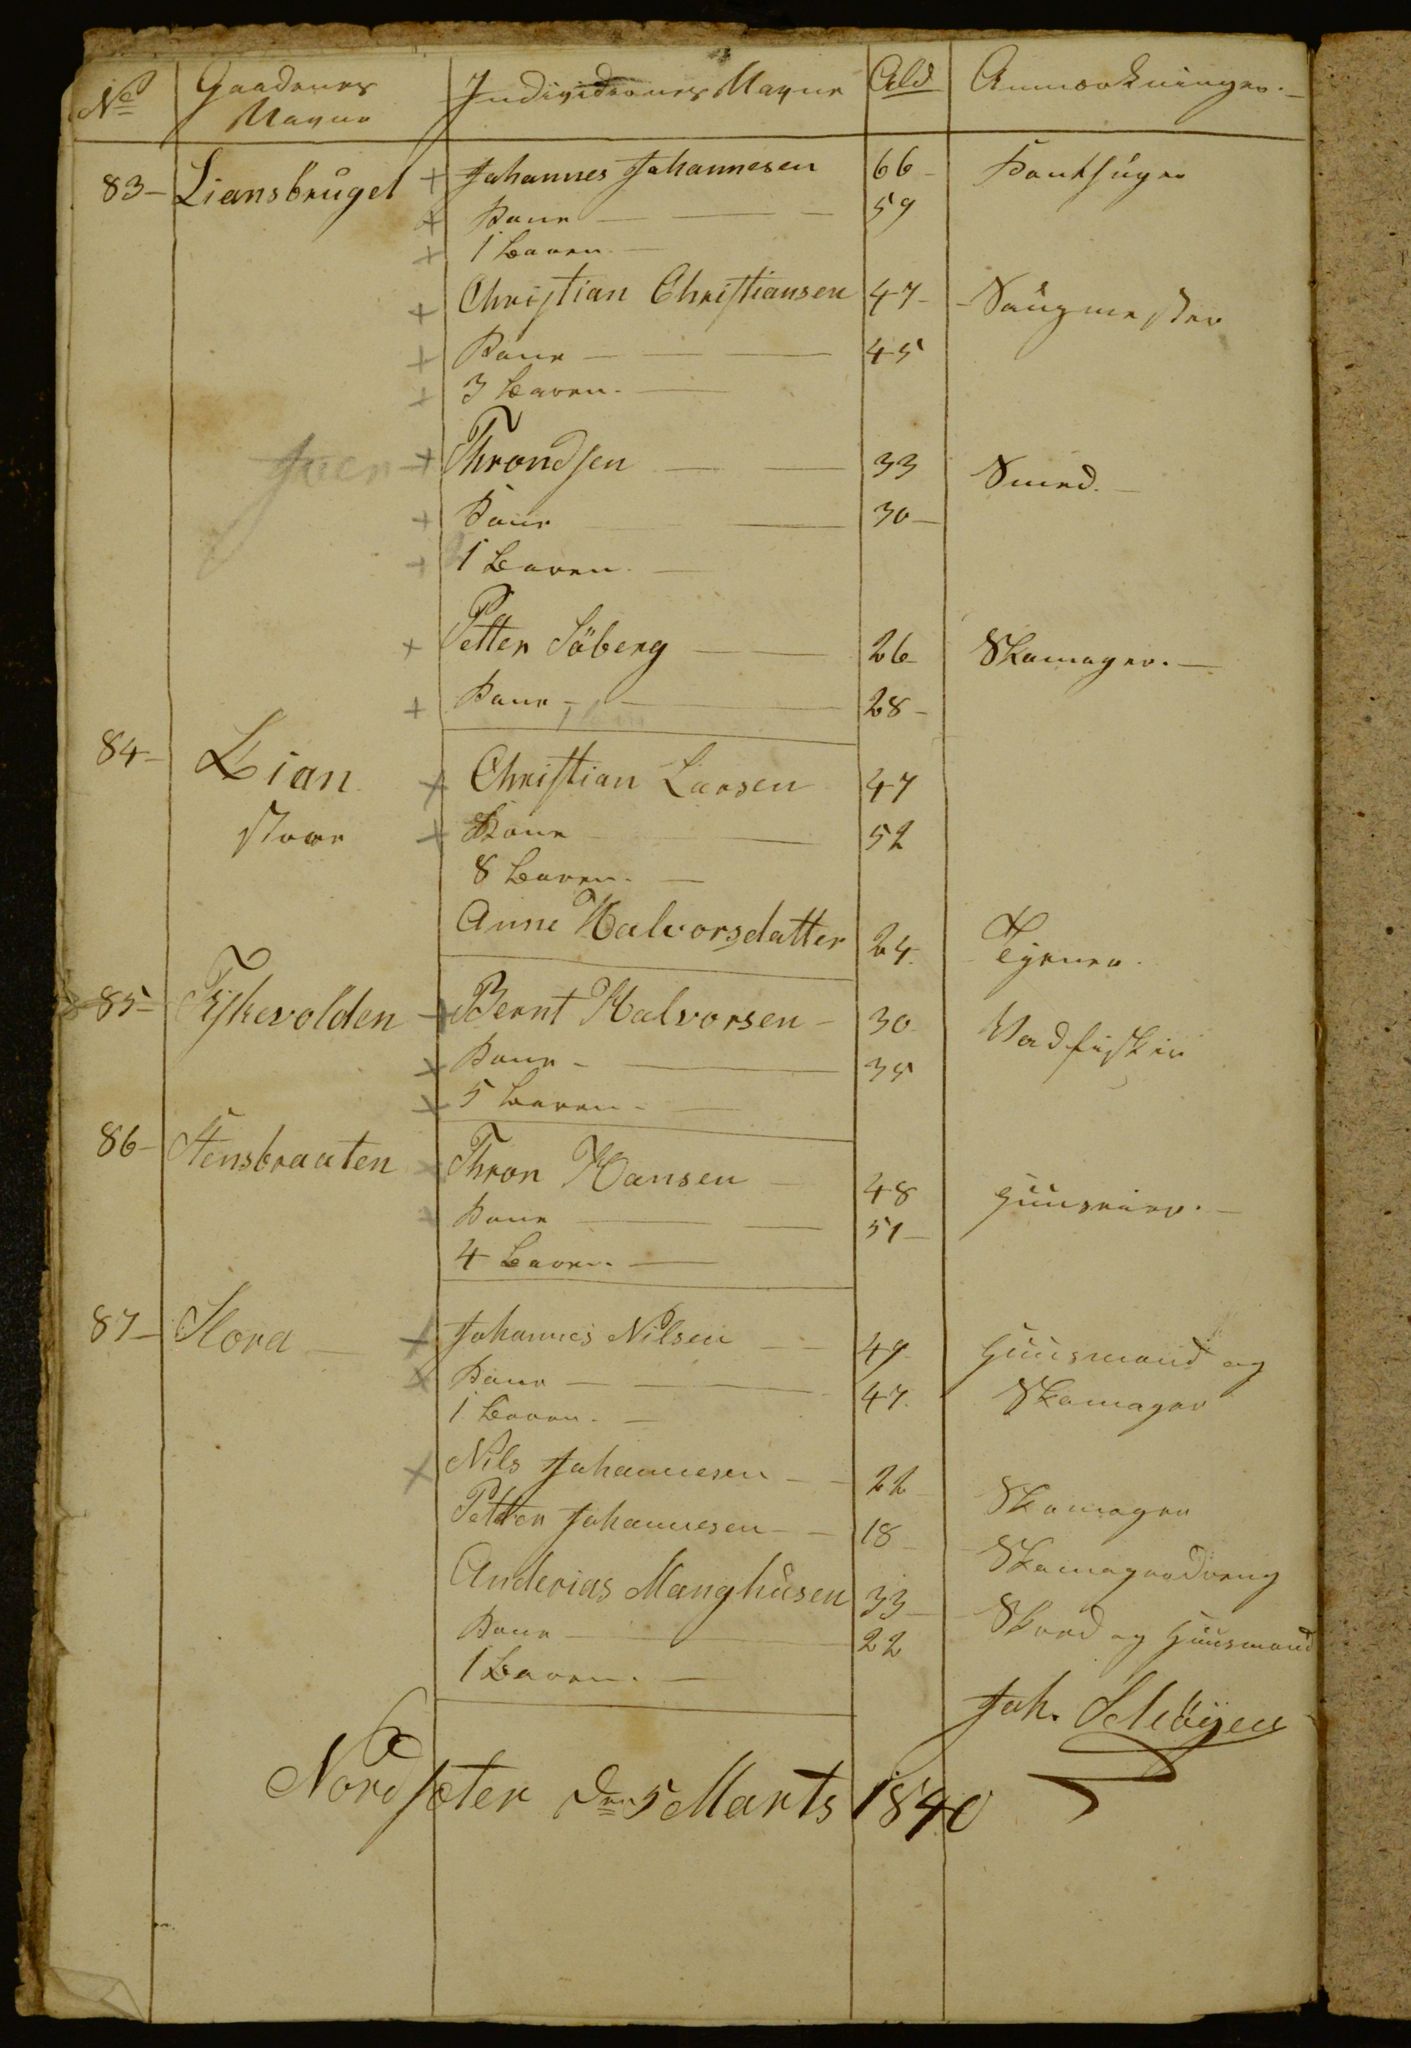 No Gaardenes Navne Individernes Navne Ald Anmærkninger.
83 Liansbruget + Johannes Johannesen 66 Kantsuger
+ Kone 59
+ 1 Barn
+ Christian Christiansen 47 Saugmester
+ Kone 45
+ 3 Børn.
+ Throndsen 33 Smed.
+ Kone 30
+ 1 Barn.
+ Petter Söberg 26 Skomager.
+ Kone 28
84 Lian store + Christian Larsen 47
+ Kone 52
8 Børn.
Anne Halvorsdatter 24 Tjener.
85 Fiskevolden + Bernt Halvorsen 30 Vadfisker
+ Kone 35
+ 5 Børn.
86 Stensbraaten + Thron Hansen 48 Huuseier.
+ Kone 51
4 Børn.
87 Flora + Johannes Nilsen 49 Huusmand og
+ Kone 47 Skomager
1 Barn.
+ Nils Johannesen 22 Skomager
Petter Johannesen 18 Skomagerdreng
Anderias Manghusen 33 Skred og Huusmand
Kone 22
1 Barn.
Joh.
Nordsæter den 5 Marts 1840